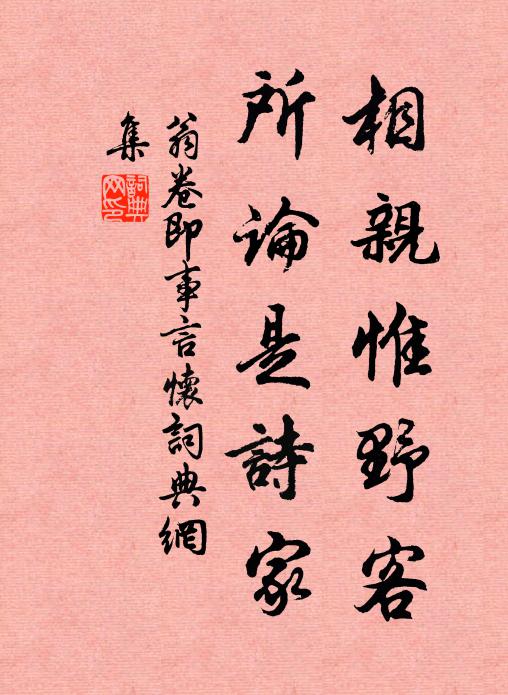 相親惟野客
所論是詩家
翁卷即事言懷詞典網
集
詞典
网印